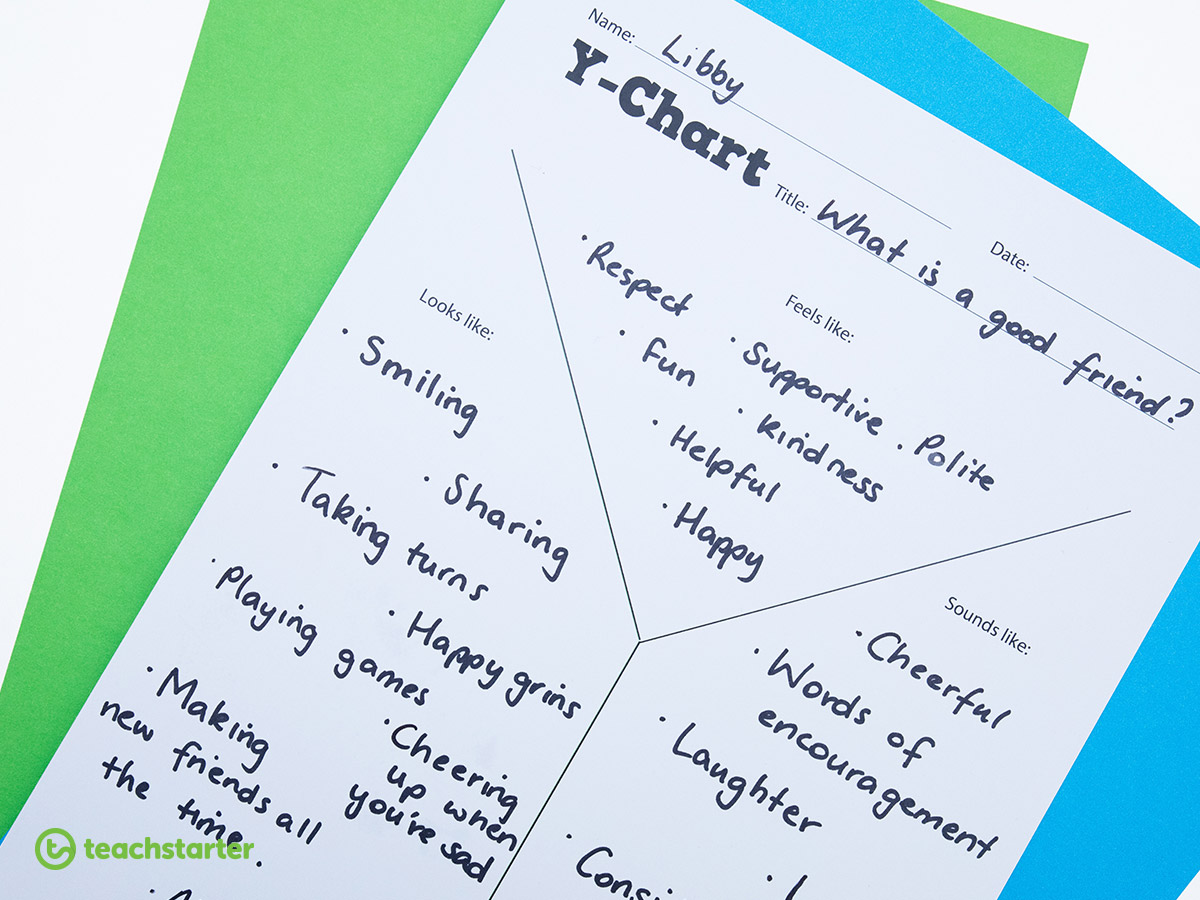 Name: Libby
Y-Chart
Title: What is a good friend?
Date:
Looks like:
· Smiling
· Sharing
· Taking turns
· Playing games
· Happy grins
· Making
new friends all
the time.
· Cheering
up when
you're sad
Feels like:
· Respect
· Fun
· Supportive
· Kindness
· Polite
· Helpful
· Happy
Sounds like:
· Cheerful
· Words of
encouragement
· Laughter
teachstarter